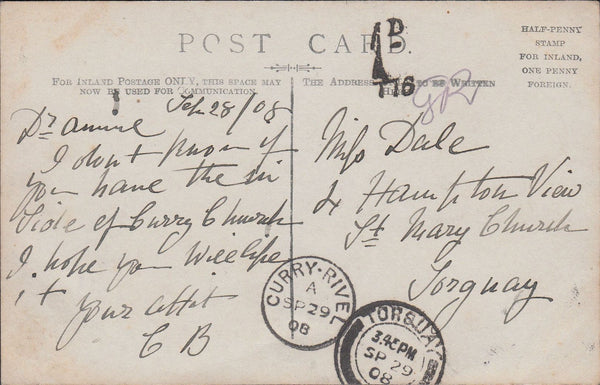 POST CARD.
HALF-PENNY
STAMP
FOR INLAND,
ONE PENNY
FOREIGN.
FOR INLAND POSTAGE ONLY, THIS SPACE MAY
NOW BE USED FOR COMMUNICATION.
THE ADDRESS TO BE WRITTEN
1D
T 16
28/08
Dr Annie
I don't know if
you have the in
Side of Curry Church
I hope you will like
it
Your affct
C B
Miss Dale
4 Hampton View
St Mary Church
Torquay
CURRY-RIVEL
A
SP 29
08
TORQUAY
3.45PM
SP 29
08